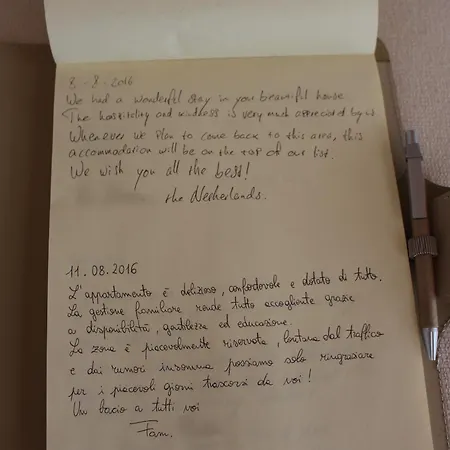 8-8-2016
We had a wonderful stay in your beautiful house.
The hostitality and kindness is very much appreciated by us.
Whenever we plan to come back to this area, this
accommodation will be on the top of our list.
We wish you all the best!
the Netherlands.
11.08.2016
L'appartamento è delizioso, confortevole e dotato di tutto.
La gestione familiare rende tutto accogliente grazie
a disponibilità, gentilezza ed educazione.
La zona è piacevolmente riservata, lontana dal traffico
e dai rumori insomma possiamo solo ringraziare
per i piacevoli giorni trascorsi da voi!
Un bacio a tutti voi
Fam.